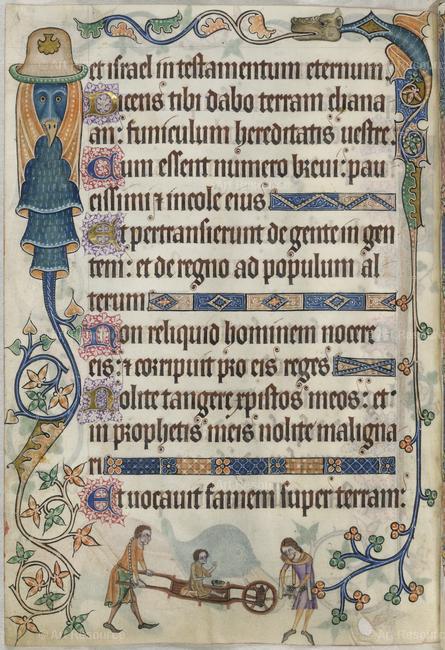 et israel in testamentum eternum.
Dicens tibi dabo terram chana
an: funiculum hereditatis uestre.
Cum essent numero breui: pau
cissimi ⁊ incole eius
Et pertransierunt de gente in gen
tem: et de regno ad populum al
terum
Non reliquid hominem nocere
eis: ⁊ corripuit pro eis reges
Nolite tangere xpistos meos: et
in prophetis meis nolite maligna
ri
Et uocauit famem super terram:
© Art Resource